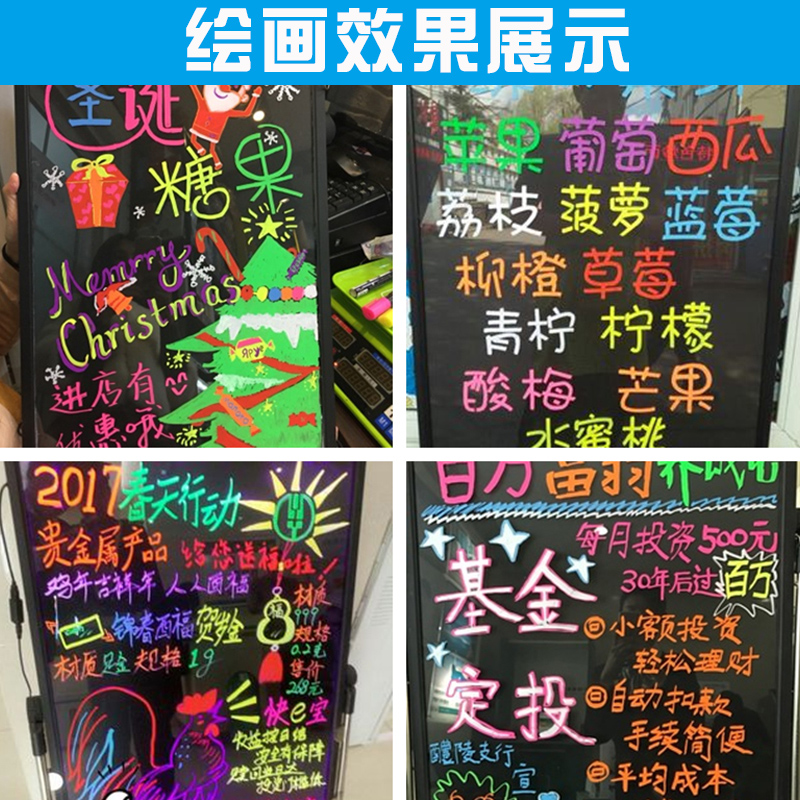 绘画效果展示
圣诞
糖果
Memrry
Christmas
进店有
优惠哦
苹果 葡萄 西瓜
荔枝 菠萝 蓝莓
柳橙 草莓
青柠 柠檬
酸梅 芒果
水蜜桃
2017春天行动
贵金属产品 给您送福啦!
鸡年吉祥年 人人面福
福
材质
999
规格
0.2克
售价
268元
锦春酉福 贺岁金
材质足金 规格1g
快e宝
收益按日结
安全有保障
百万富翁养成记
每月投资500元
30年后过百万
基金
定投
小额投资
轻松理财
自动扣款
手续简便
平均成本
醴陵支行
宣